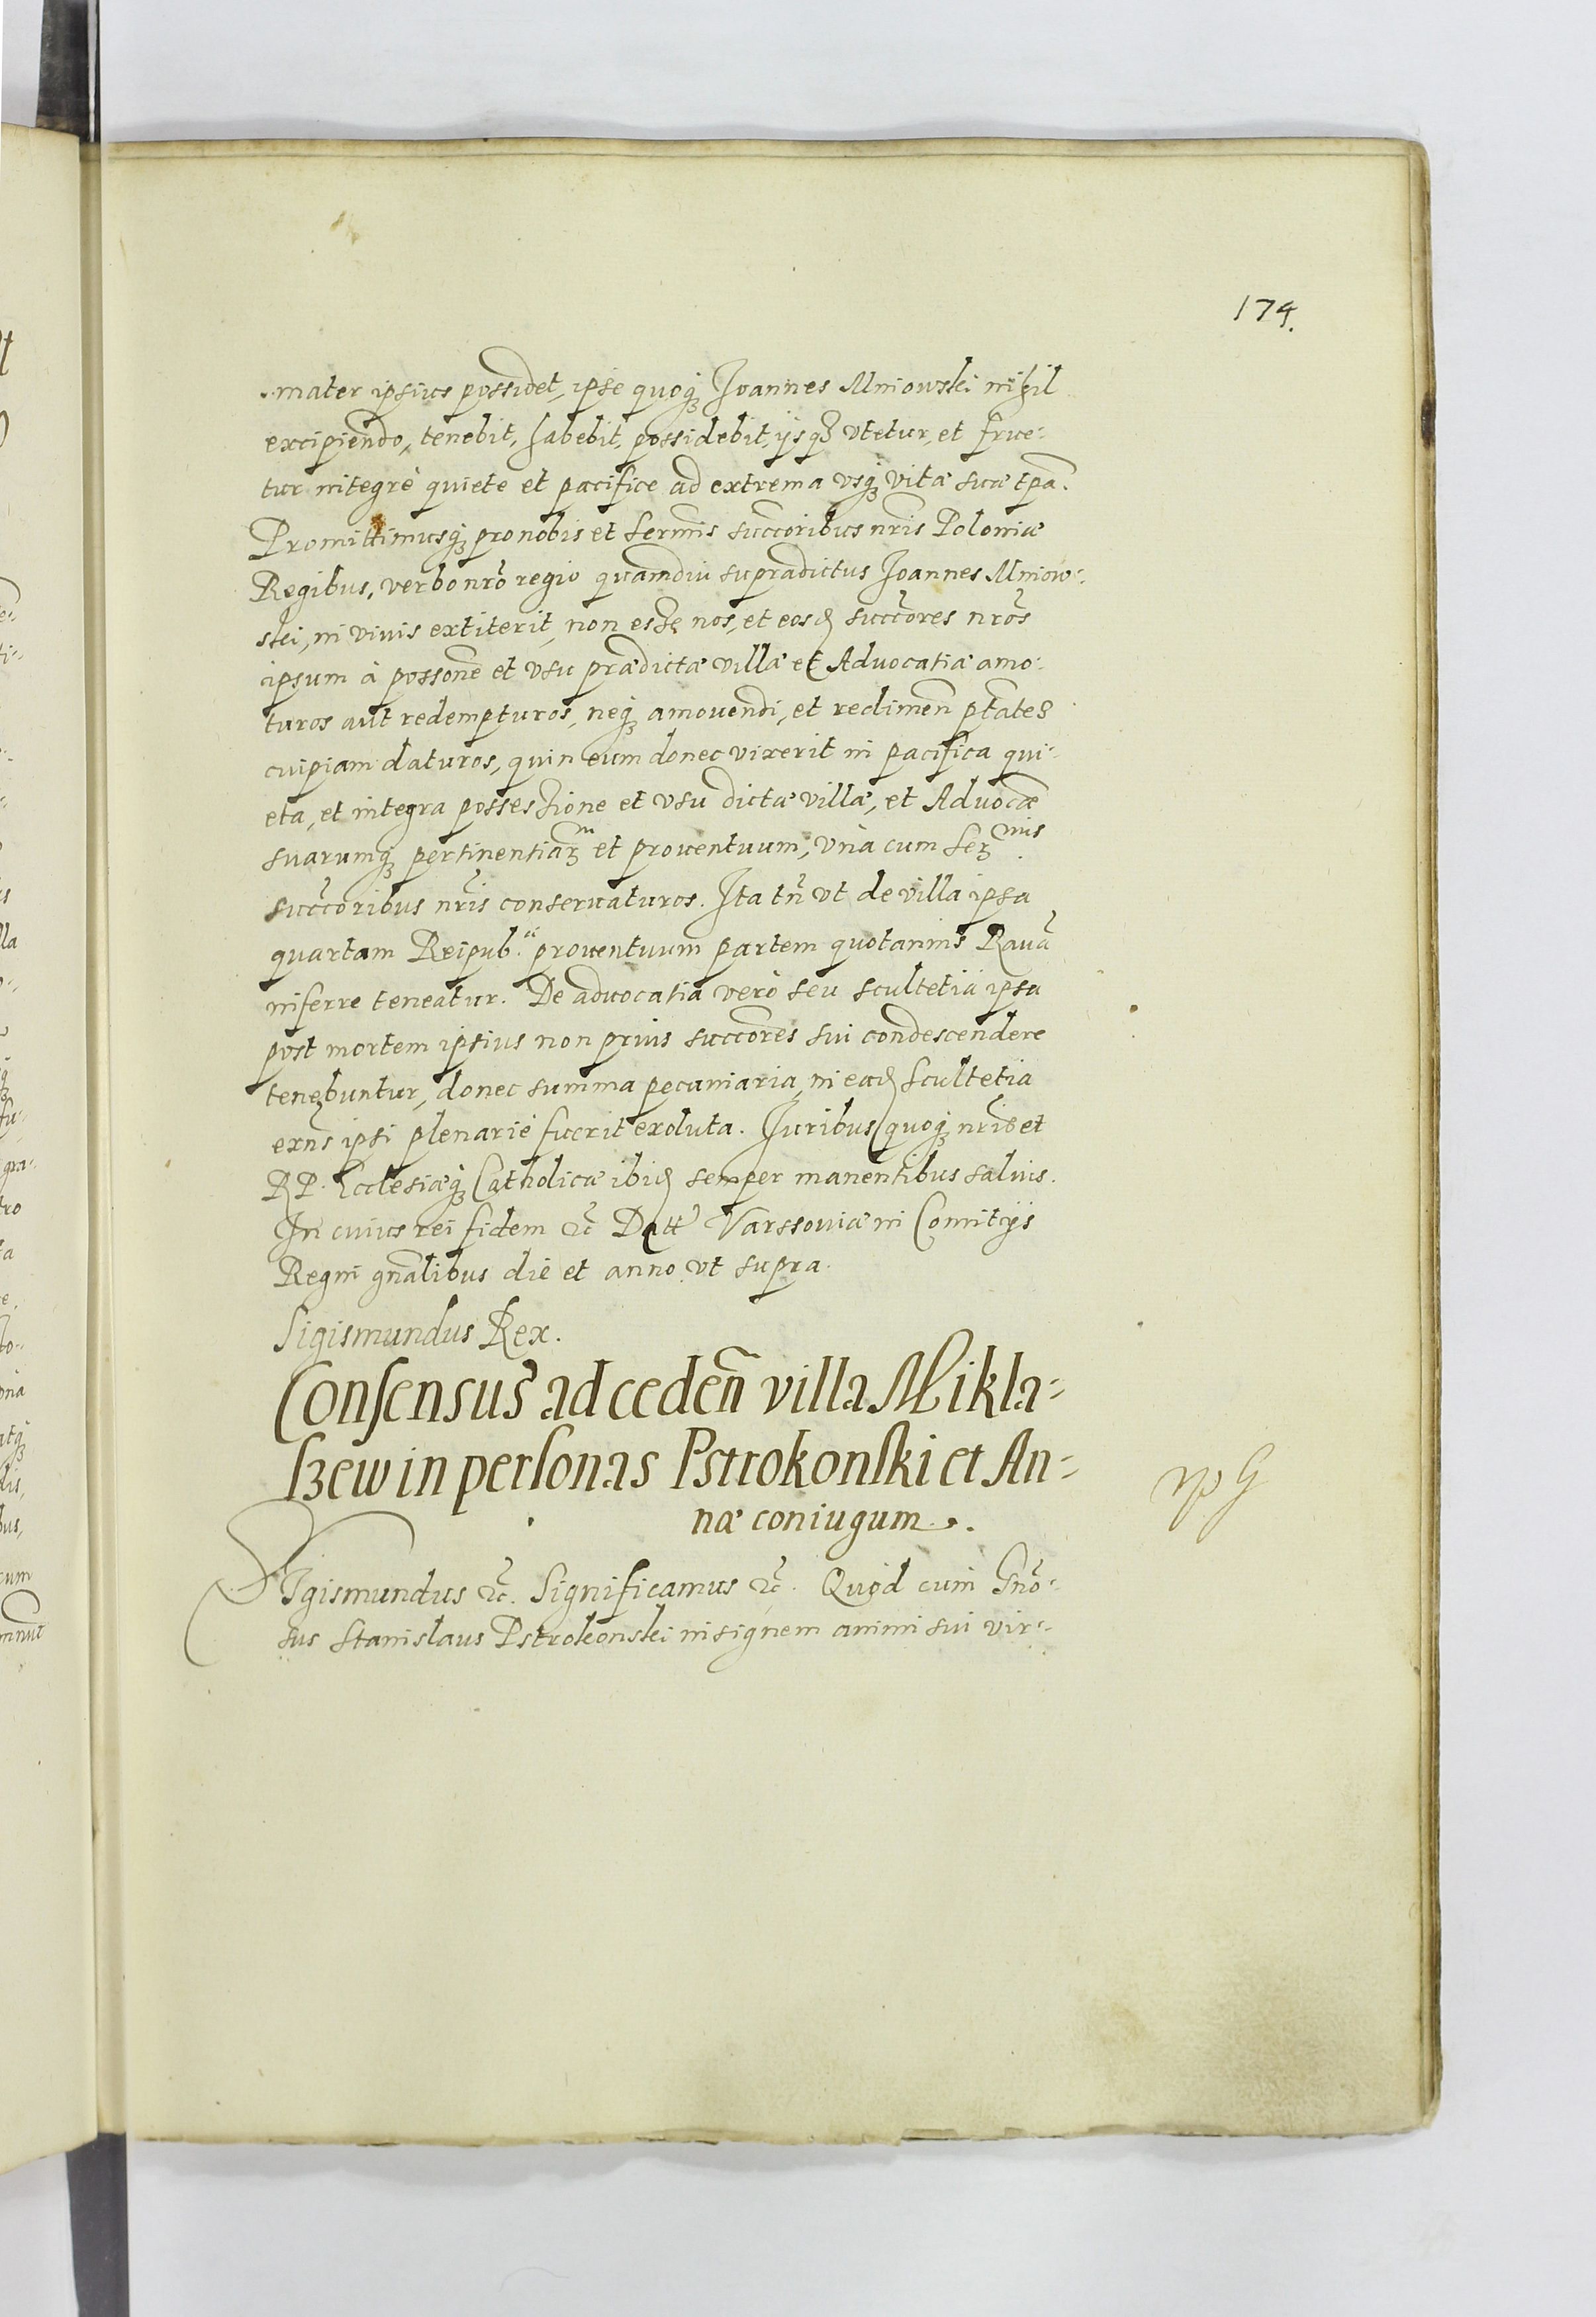 174.
mater ipsius possidet, ipse quoq́ꝫ Joannes Mniowski nihil
excipiendo, tenebit, habebit, possidebit, ijsqꝫ vtetur, et frue-
tur integrè quiete et pacifice ad extrema vsq́ꝫ vitæ suæ tp̃a.
Promittimusq́ꝫ pro nobis et Sermis succ̃oribus nr̃is Poloniæ
Regibus, verbo nrõ regio quamdiu supradictus Joannes Mniow-
ski, in viuis extiterit, non esse nos, et eosd succ̃ores nrõs
ipsum à possone et vsu prædictæ villæ et Aduocatiæ amo-
turos aut redempturos, neq́ꝫ amouendi, et redimen̄ ptãtes
cuipiam daturos, quin eum donec vixerit in pacifica qui-
eta, et integra possessione et vsu dictæ villæ, et Aduocæ
suarumq́ꝫ pertinentiarꝫ et prouentuum, vnà cum Serꝫmis
succ̃oribus nr̃is conseruaturos. Ita tñ vt de villa ipsa
quartam Reipub. prouentuum partem quotannis Rauã
inferre teneatur. De aduocatia verò seu scultetia ipsa
post mortem ipsius non prius succores sui condescendere
tenebuntur, donec summa pecuniaria, in ead Scultetia
exñs ipsi plenariè fuerit exoluta. Juribus quoq́ꝫ nr̃is et
RP. Ecclesiæq́ꝫ Catholicæ ibid semper manentibus saluis.
In cuius rei fidem &c̃ Datt Varssouiæ in Comitijs
Regni gñalibus die et anno vt supra.
Sigismundus Rex.
Consensus ad ceden̄ villa Mikla-
szew in personas Pstrokonski et An-
næ coniugum.
Sigismundus &c̃. Significamus &c̃. Quod cum Gnõ-
sus Stanislaus Pstrokonski insignem animi sui vir-